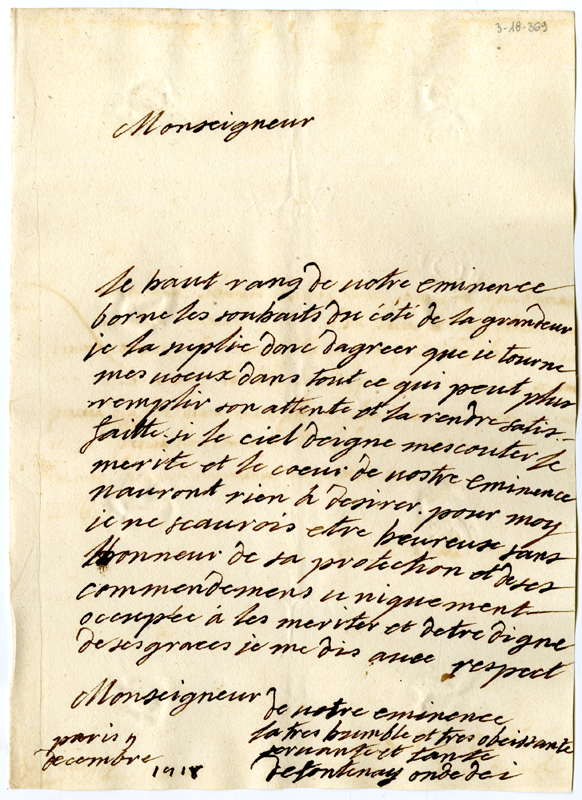 3-18-369
Monseigneur
le haut rang de votre eminence
borne les souhaits du côté de la grandeur
je la suplie donc dagreer que ie tourne
mes voeux dans tout ce qui peut plus
remplir son attente et la rendre satis-
faitte. si le ciel deigne mescouter le
merite et le coeur de vostre eminence
nauront rien à desirer. pour moy
ie ne scaurois etre heureuse sans
lhonneur de sa protection et de ses
commendemens uniquement
occupée à les meriter et detre digne
de ses graces je me dis avec respect
Monseigneur
de votre eminence
la tres humble et tres obeissante
servante et tante
de fontenay ondedei
paris 9
decembre
1718